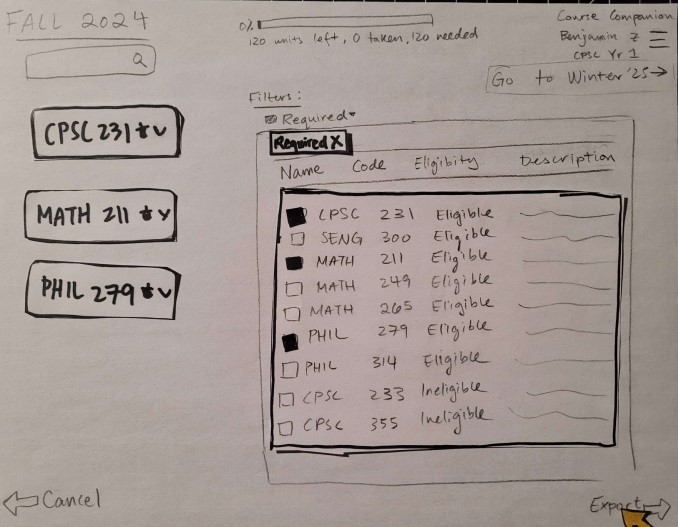 FALL 2024
0%
120 units left, 0 taken, 120 needed
Course Companion
Benjamin Z
CPSC Yr 1
Go to Winter '25→
Filters:
Required
Required X
Name Code Eligibity Description
CPSC 231 Eligible
SENG 300 Eligible
MATH 211 Eligible
MATH 249 Eligible
MATH 265 Eligible
PHIL 279 Eligible
PHIL 314 Eligible
CPSC 233 Ineligible
CPSC 355 Ineligible
CPSC 231 ★
MATH 211 ★
PHIL 279 ★
Cancel
Export